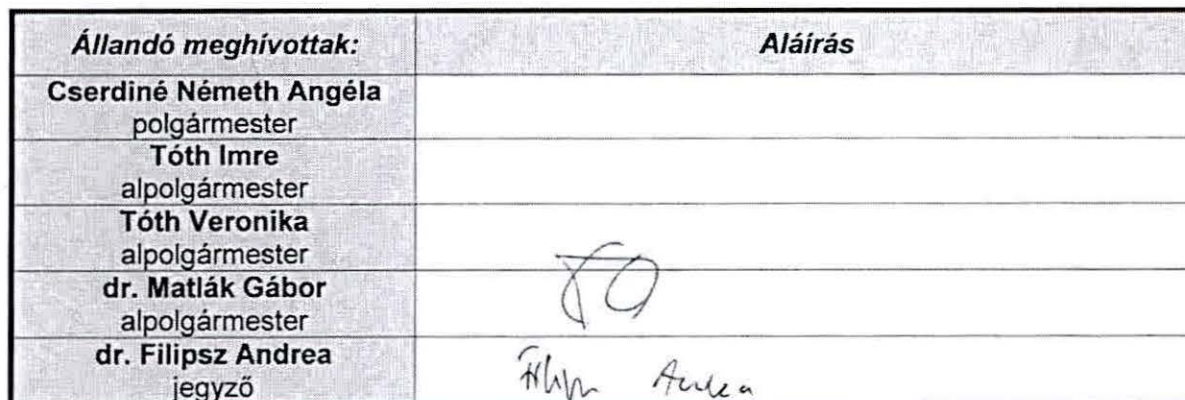 Állandó meghívottak: Aláírás
Cserdiné Németh Angéla
polgármester
Tóth Imre
alpolgármester
Tóth Veronika
alpolgármester
dr. Matlák Gábor
alpolgármester
dr. Filipsz Andrea
jegyző